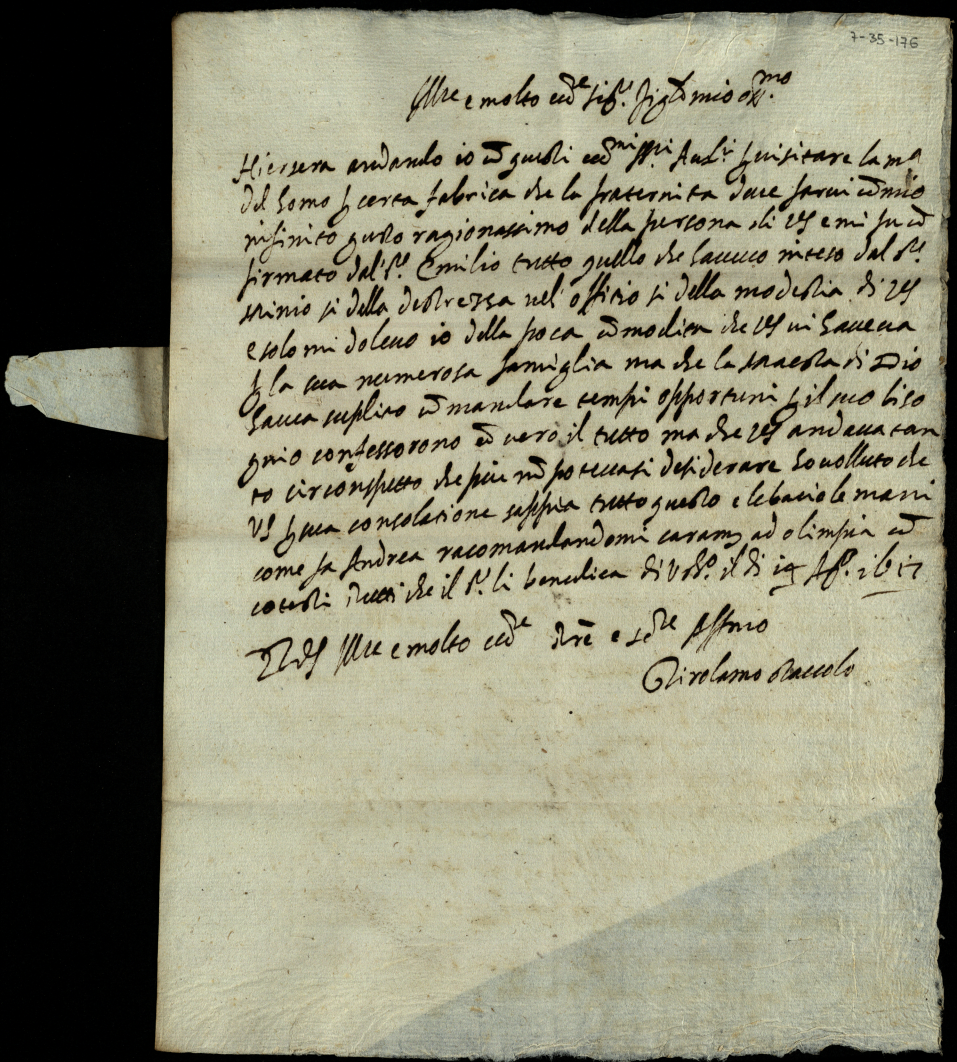 7-35-176
Ill.re e molto ecc.e Sig.r figlō mio oss.mo
Hiersera andando io cō questi ecc.mi ss.ri Audi.ri visitare la
del homo certa fabrica che la fraternita deve farvi cō mio
infinito gusto ragionassimo della persona di VS e mi fu cō
firmato dal S.r Emilio tutto quello che havevo inteso dal S.r
si della destrezza nel offitio si della modestia di VS
e solo mi dolevo io della poca cōmodita che VS vi haveva
p la sua numerosa famiglia ma che la maesta di Dio
havea suplito cō mandare tempi opportuni p il suo biso
gnio confessorono eē vero il tutto ma che VS andava tan
to circōnspetto che piu nō potevasi desiderare ho volluto che
VS p sua consolatione sappia tutto questo e le bacio le mani
come fa Andrea racomandandomi caram.te ad olimpia cō
cotesti putti che il S.r li benedica di il di 14 1617
Di VS Ill.re e molto ecc.e e se.re Aff.mo
Girolamo Staccolo